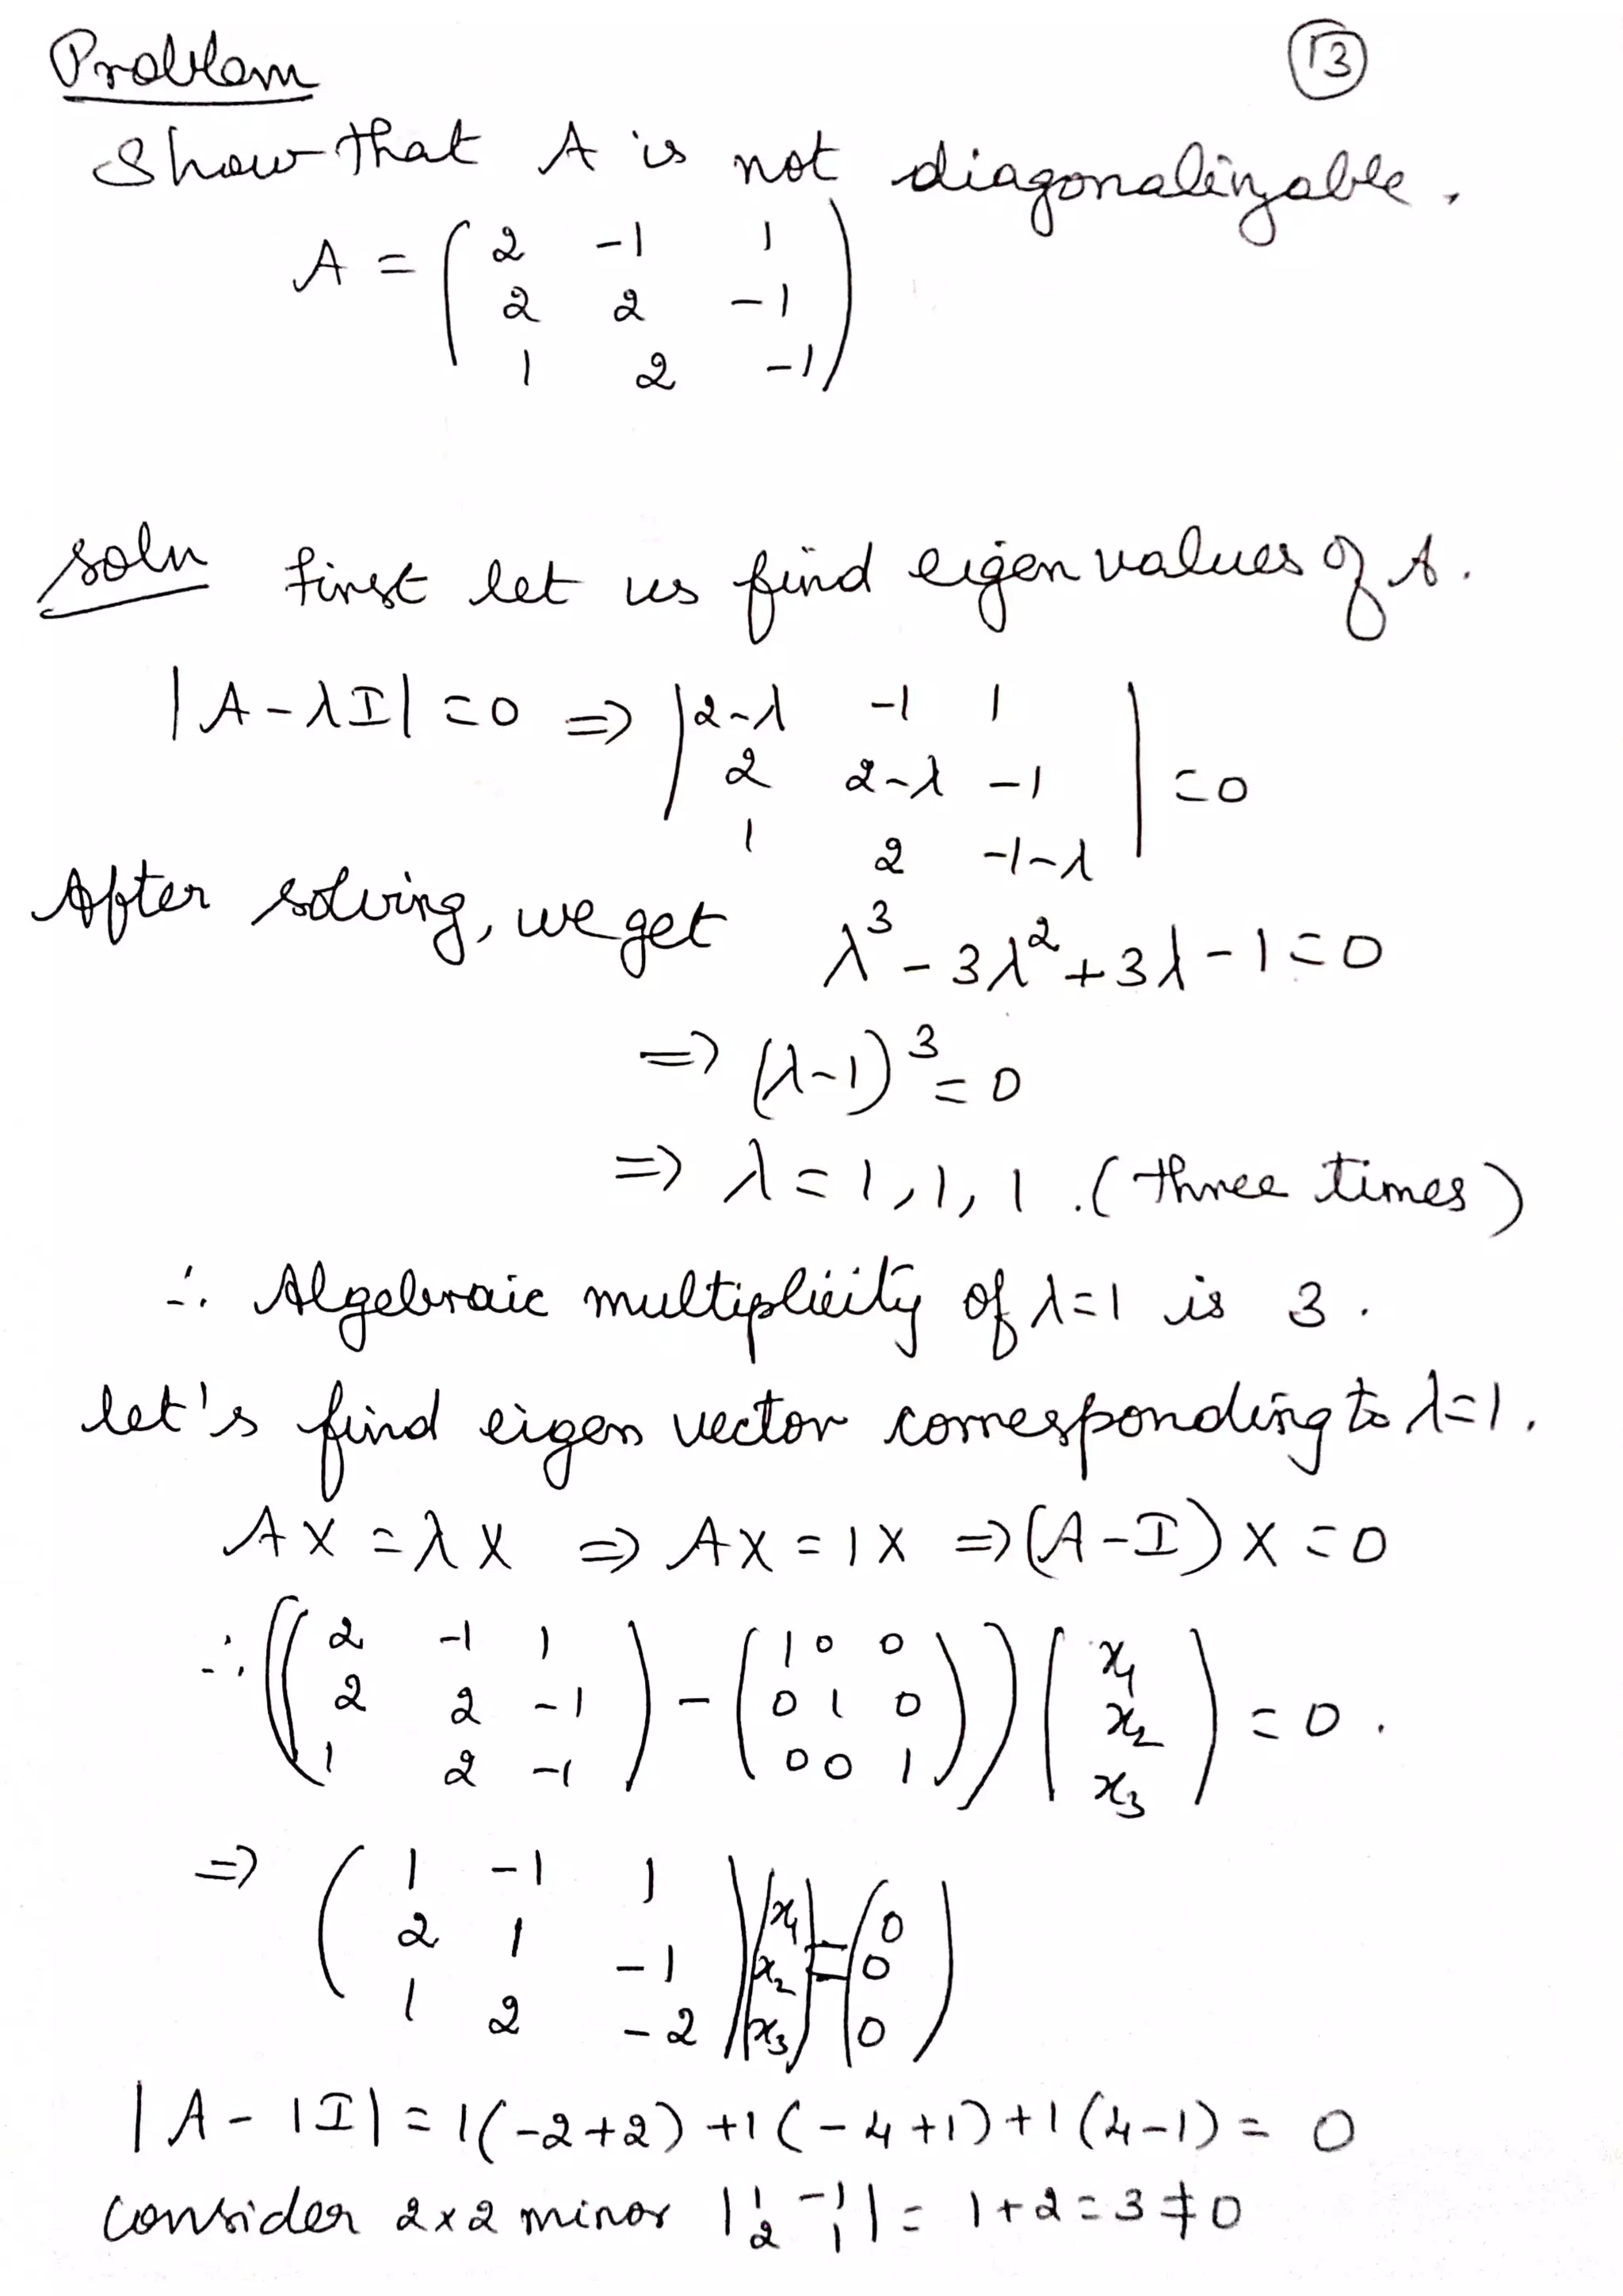 Problem
13
Show that A is not diagonalizable.
A = ( 2 -1 1
2 2 -1
1 2 -1 )
soln first let us find eigen values of A.
|A-λI| = 0 => | 2-λ -1 1
2 2-λ -1
1 2 -1-λ | = 0
After solving, we get λ³ - 3λ² + 3λ - 1 = 0
=> (λ-1)³ = 0
=> λ = 1, 1, 1 . (three times)
∴ Algebraic multiplicity of λ=1 is 3 .
let's find eigen vector corresponding to λ=1.
AX = λX => AX = 1X => (A-I)X = 0
∴ (( 2 -1 1 ) - ( 1 0 0 )) ( x₁
2 2 -1 0 1 0 x₂ = 0 .
1 2 -1 0 0 1 x₃ )
=> ( 1 -1 1 ) ( x₁ ) = ( 0
2 1 -1 x₂ 0
1 2 -2 x₃ 0 )
|A - 1I| = 1(-2+2) +1(-4+1)+1(4-1) = 0
consider 2x2 minor | 1 -1
2 1 | = 1+2 = 3 ≠ 0